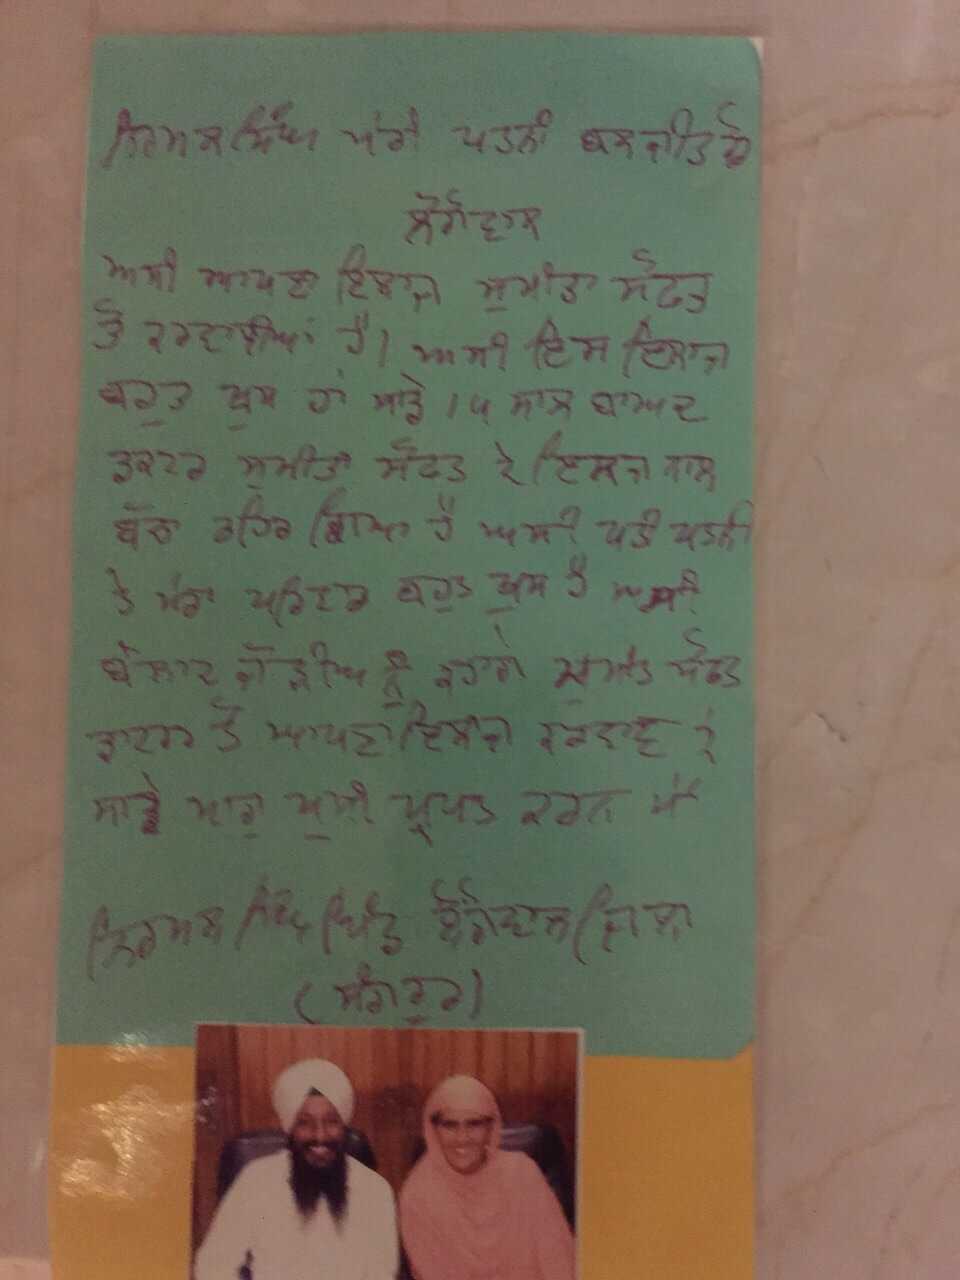 ਨਿਰਮਲ ਸਿੰਘ ਪਤਨੀ ਬਲਜੀਤ ਕੌ
ਲੌਂਗੋਵਾਲ
ਅਸੀ ਆਪਣਾ ਇਲਾਜ ਸੁਮੀਤਾ ਸੌਫਤ
ਤੋਂ ਕਰਵਾਈਆਂ ਹੈ। ਅਸੀ ਇਸ ਇਲਾਜ
ਬਹੁਤ ਖੁਸ ਹਾਂ ਸਾਡੇ 15 ਸਾਲ ਬਾਅਦ
ਡਕਟਰ ਸੁਮੀਤਾ ਸੌਫਤ ਦੇ ਇਲਾਜ ਨਾਲ
ਬੱਚਾ ਠਹਿਰ ਗਿਆ ਹੈ ਅਸੀ ਪਤੀ ਪਤਨੀ
ਤੇ ਸਾਰਾ ਪਰਿਵਾਰ ਬਹੁਤ ਖੁਸ ਹੈ ਅਸੀ
ਬੇਲਾਦ ਜੋੜੀਆ ਨੂੰ ਕਹਾਗੇ ਸੁਮੀਤਾ ਸੌਫਤ
ਡਾਟਰ ਤੋਂ ਆਪਣਾ ਇਲਾਜ ਕਰਵਾਓ ਤੇ
ਸਾਡੇ ਵਾਗੁ ਖੁਸੀ ਪ੍ਰਾਪਤ ਕਰਨ
ਨਿਰਮਲ ਸਿੰਘ ਪਿੰਡ ਲੌਂਗੋਵਾਲ ਜਿਲਾ
(ਸੰਗਰੂਰ)